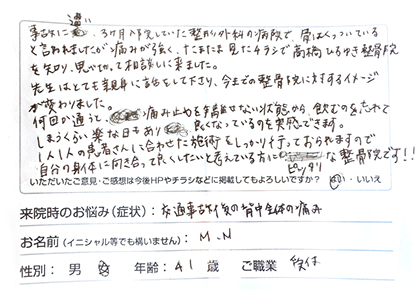 事故に遭い、3ヶ月通院していた整形外科の病院で、骨はくっついている
と言われましたが痛みが強く、たまたま見たチラシで高橋ひろゆき整骨院
を知り、思い切って相談しに来ました。
先生はとても親身に話をして下さり、今までの整骨院に対するイメージ
が変わりました。
何回か通うと、痛み止めを手離せない状態から飲むのを忘れて
しまうくらい楽な日もあり良くなっているのを実感できます。
1人1人の患者さんに合わせた施術をしっかり行っておられますので
自分の身体に向き合って良くしたいと考えている方にピッタリな整骨院です!!
いただいたご意見・ご感想は今後HPやチラシなどに掲載してもよろしいですか? はい・いいえ
来院時のお悩み(症状):交通事故後の背中全体の痛み
お名前(イニシャル等でも構いません): M.N
性別: 男 女 年齢: 41 歳 ご職業